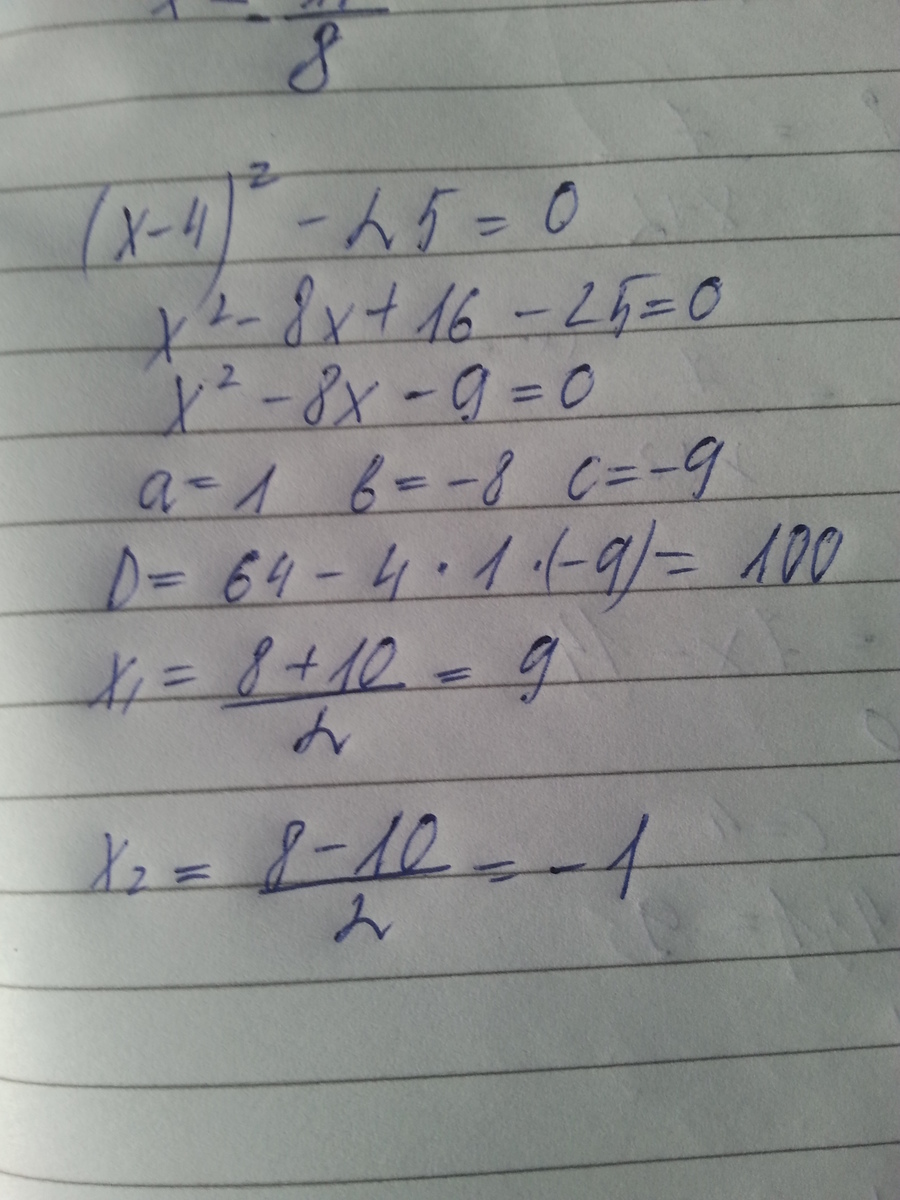 8
(x-4)² - 25 = 0
x² - 8x + 16 - 25 = 0
x² - 8x - 9 = 0
a = 1 b = -8 c = -9
D = 64 - 4 · 1 · (-9) = 100
x₁ = (8 + 10)/2 = 9
x₂ = (8 - 10)/2 = -1